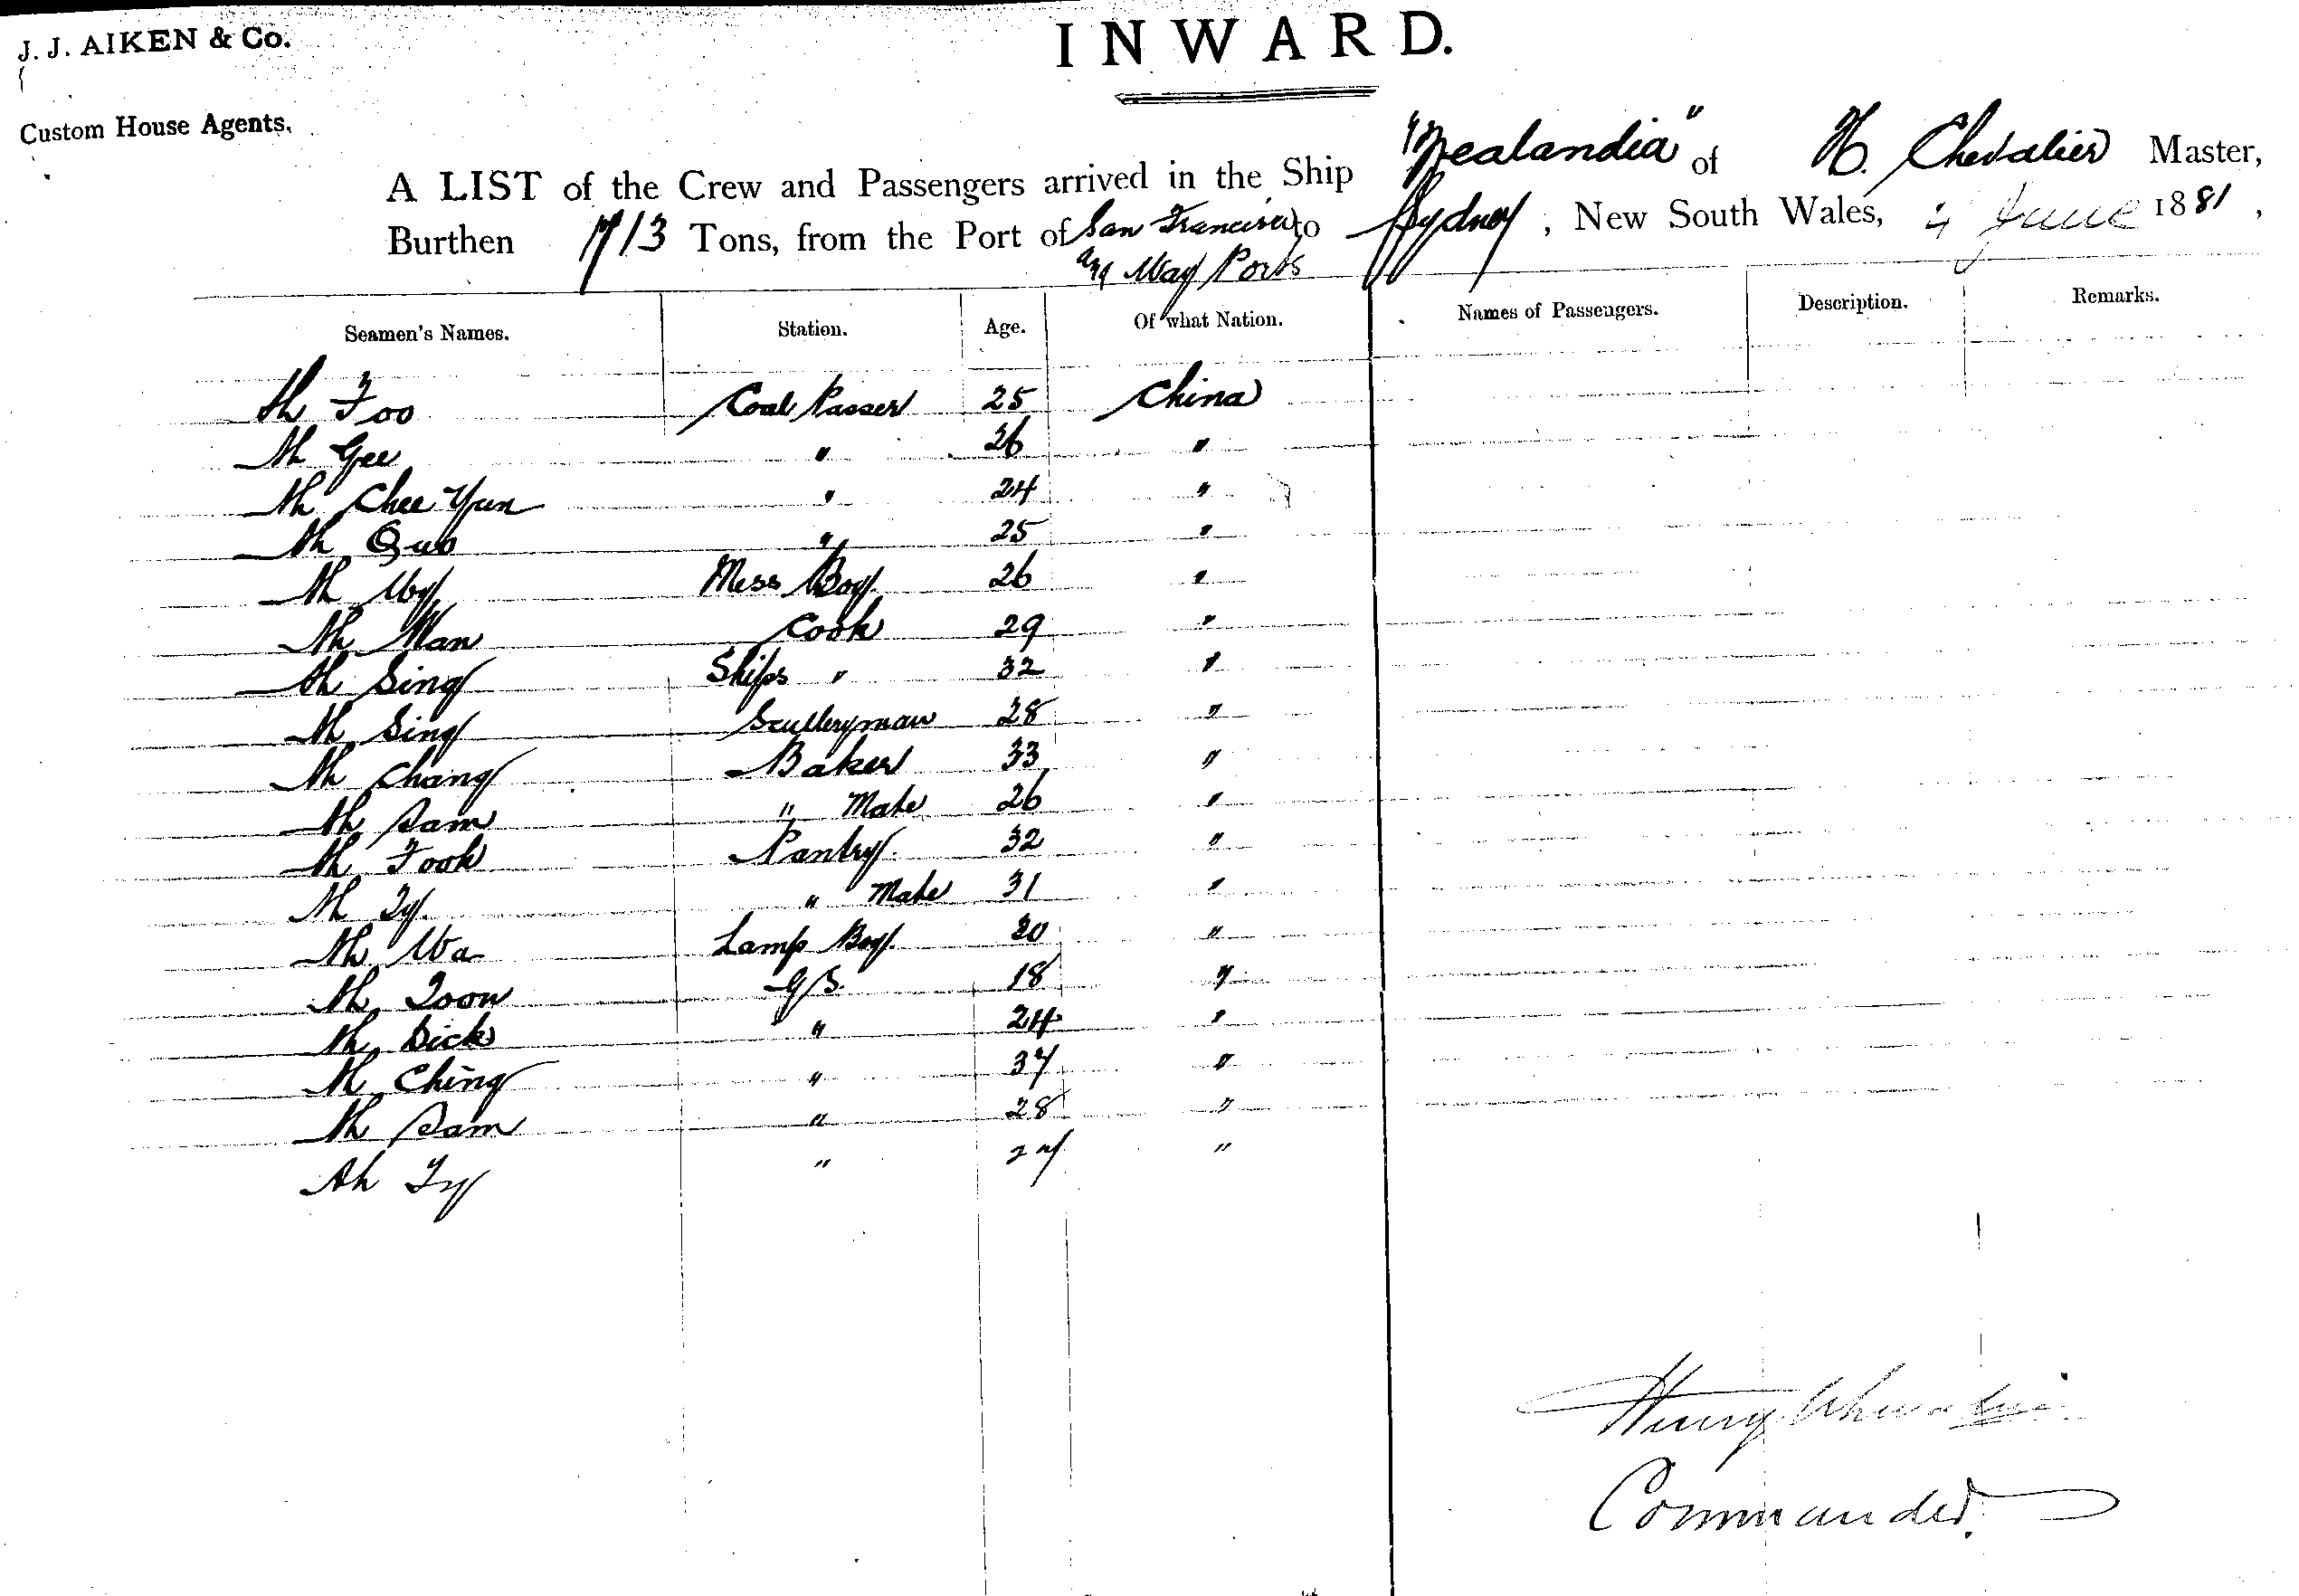 J. J. AIKEN & Co.
INWARD.
Custom House Agents.
A LIST of the Crew and Passengers arrived in the Ship "Zealandia" of H. Chevalier Master,
Burthen 1713 Tons, from the Port of San Francisco to Sydney, New South Wales, 4 June 1881,
and Way Ports
Seamen's Names. Station. Age. Of what Nation. Names of Passengers. Description. Remarks.
Ah Foo Coal Passer 25 China
Ah Gee " 26 "
Ah Chee Yun " 24 "
Ah Quo " 25 "
Ah Mess Boy. 26 "
Ah Wan Cook 29 "
Ah Sing Ships " 32 "
Ah Sing Sculleryman 28 "
Ah Chang Baker 33 "
Ah Sam " Mate 26 "
Ah Fook Pantry. 32 "
Ah " Mate 31 "
Ah Wa Lamp Boy. 20 "
Ah G/S. 18 "
Ah Dick " 24 "
Ah Ching " 37 "
Ah Sam " 28 "
Ah " 27 "
Henry Chevalier
Commander.